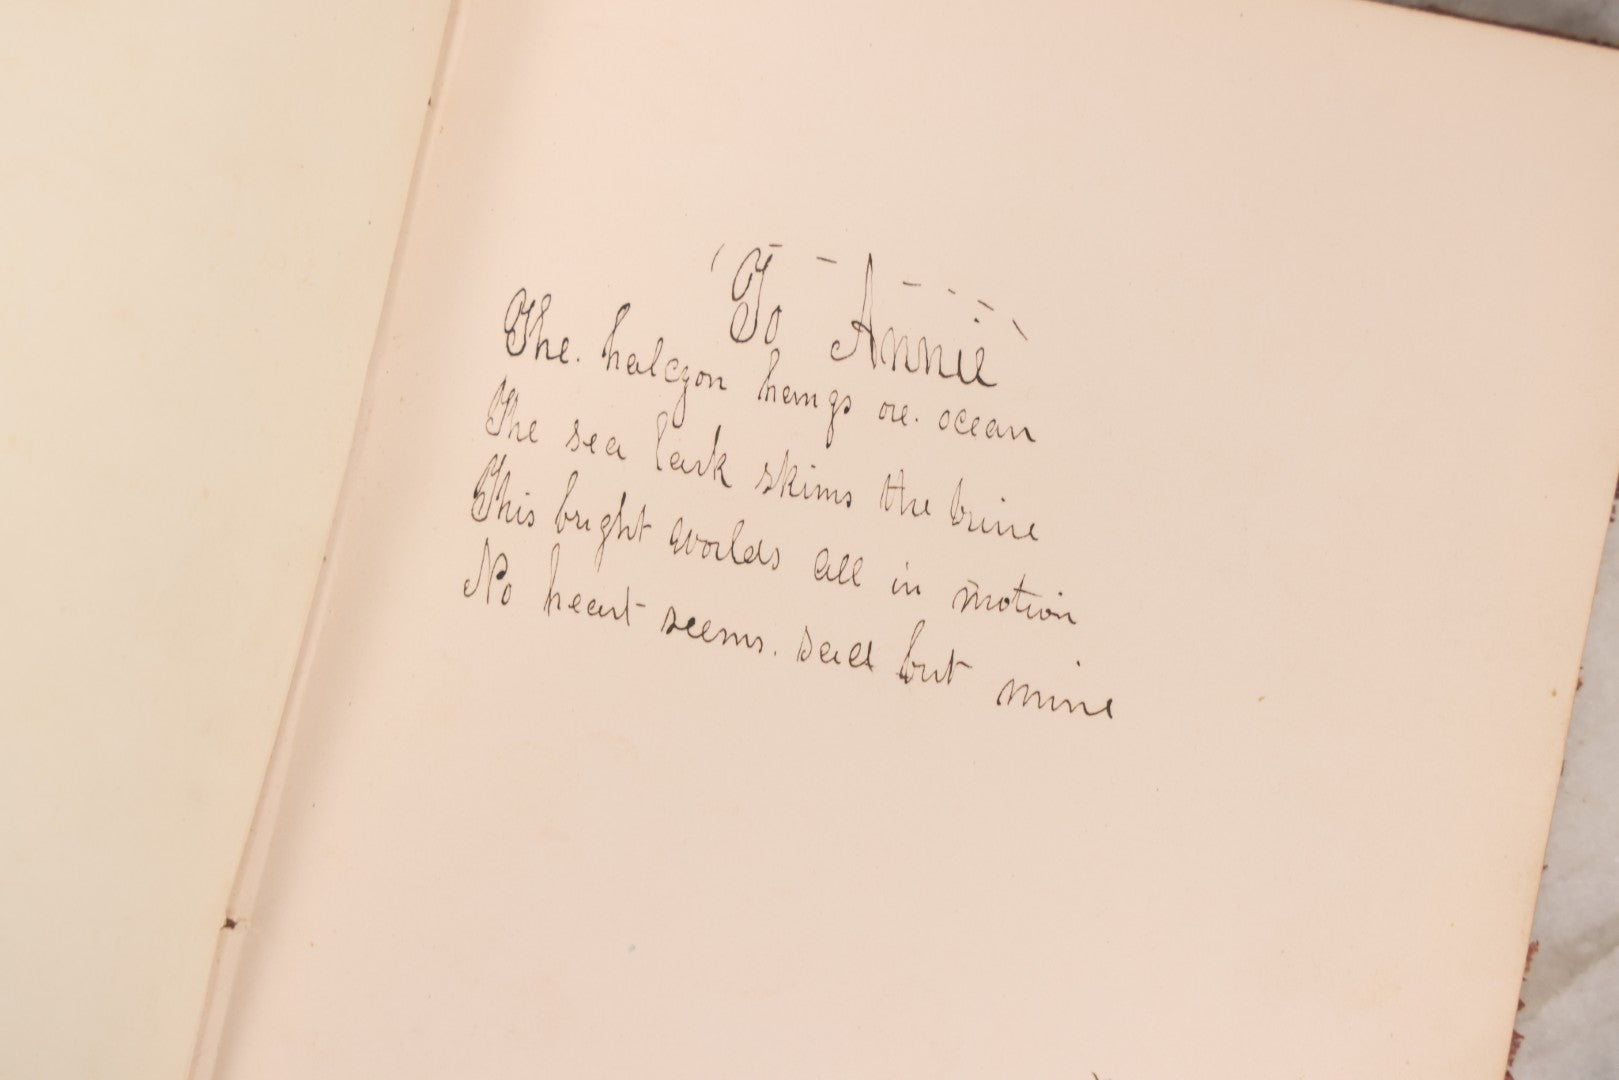 To Annie
The. halcyon hangs ore. ocean
The sea lark skims the brine
This bright worlds all in motion
No heart seems. sad but mine